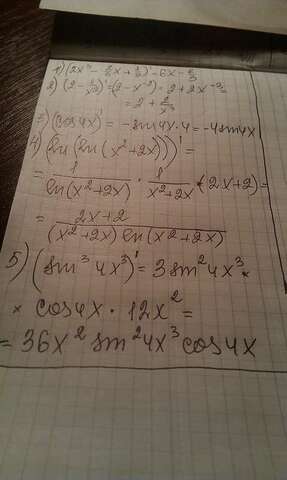 2) (2 - 1/x²)' = (2 - x⁻²)' = 2 + 2x⁻³ =
= 2 + 2/x³
3) (cos4x)' = -sin4x·4 = -4sin4x
4) (ln(ln(x²+2x)))' =
= 1/ln(x²+2x) · 1/x²+2x · (2x+2) =
= 2x+2/(x²+2x)ln(x²+2x)
5) (sin³4x³)' = 3sin²4x³ ×
× cos4x · 12x² =
= 36x² sin²4x³ cos4x